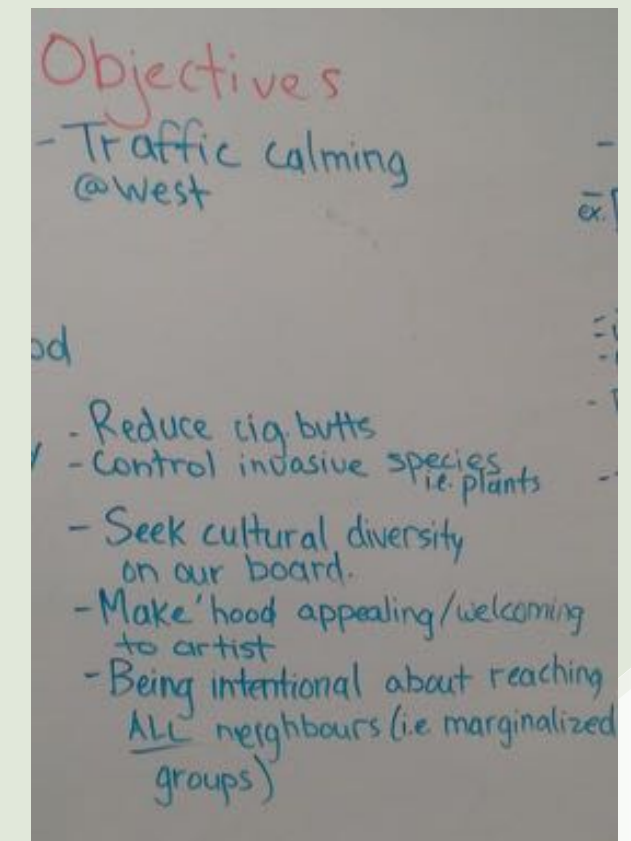 Objectives
- Traffic calming
@West
ex.
od
- Reduce cig. butts
- Control invasive species
i.e. plants
- Seek cultural diversity
on our board.
- Make 'hood appealing/welcoming
to artist
- Being intentional about reaching
ALL neighbours (i.e marginalized
groups)